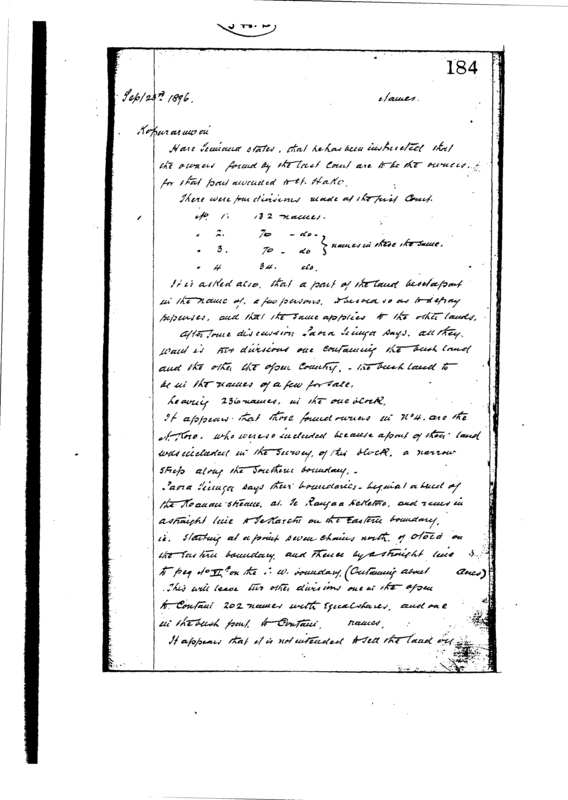 184
Sep/23rd 1896. James.
Hare states, that he has been instructed that
the owners found by the last Court are to be the owners
for that part awarded to N. Hako.
There were four divisions made at the first Court.
No. 1. 132 names.
" 2. 70 - do -
" 3. 70 - do } names in these the same.
" 4 34. do.
It is asked also, that a part of the land be set apart
in the name of, a few persons, so as to defray
expenses, and that the same applies to the other lands.
After some discussion Paora Tiunga says, all they
want is two divisions one containing the bush land
and the other the open Country, - the bush land to
be in the names of a few for sale.
Leaving 236 names, in the one block.
It appears that those found owners in No 4. are the
N. Koro. who were so included because a part of their land
was included in the Survey, of this block, a narrow
strip along the Southern boundary. -
Paora Tiunga says their boundaries - begin at a bend of
the stream, at Te and runs in
a straight line to on the Eastern boundary,
ie. starting at a point seven chains north, of on
the Eastern boundary, and thence by a straight line
to peg No on the S. W. boundary, (Containing about acres)
This will leave two other divisions one in the open
to Contain 202 names with Equal shares, and one
in the bush part, to Contain names.
It appears that it is not intended to sell the land